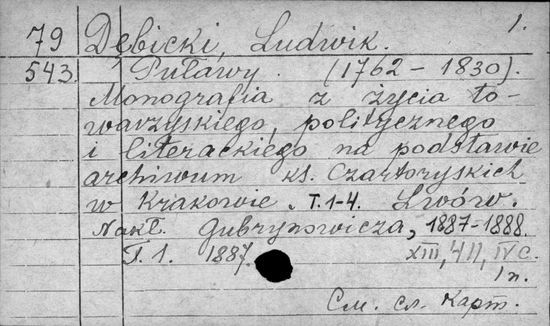 1.
79 Dębicki, Ludwik.
543. Puławy. (1762 – 1830).
Monografia z życia to-
warzyskiego, politycznego
i literackiego na podstawie
archiwum ks. Czartoryskich
w Krakowie. T. 1-4. Lwów.
Nakł. Gubrynowicza, 1887-1888.
T. 1. 1887. XIII, 411, IV c.
1 п.
См. сл. карт.